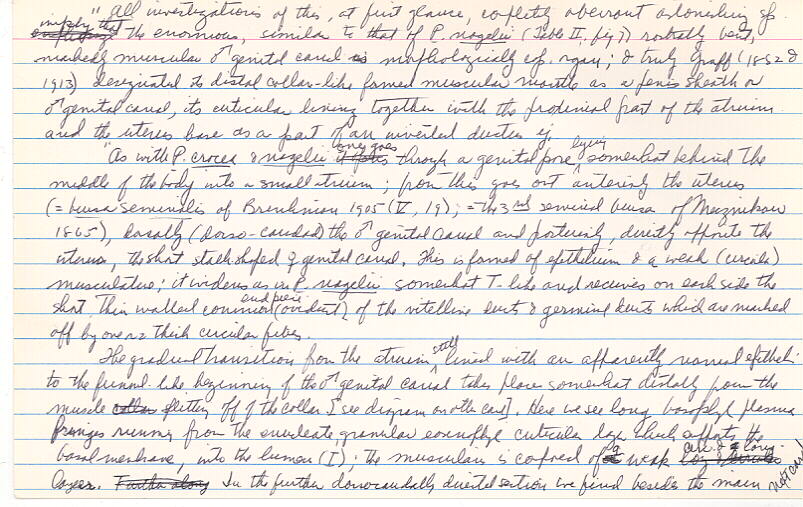 " All investigations of this, at first glance, completely aberrant astonishing sp.
imply that the enormous, similar to that of P. nagelii (Table II, fig 7) robustly built,
markedly muscular ♂ genital canal is morphologically esp. organ; & truly Graff (1882 &
1913) designated its distal collar-like formed muscular mantle as a penis sheath or
♂ genital canal, its cuticular lining together with the proximal part of the atrium
and the uterus base as a part of an inverted ductus ej.
"As with P. crocea & nagelii one goes through a genital pore lying somewhat behind the
middle of the body into a small atrium; from this goes out anteriorly the uterus
(= bursa seminalis of Brenkman 1905 (V, 19); = the 3rd seminal bursa of
1865), dorsally (dorso-caudad) the ♂ genital canal and posteriorly, directly opposite the
uterus, the short stalk shaped ♀ genital canal. This is formed of epithelium & a weak (circular)
musculature; it widens as in P. nagelii somewhat T-like and receives on each side the
short, thin walled common end piece (oviduct) of the vitelline ducts & germinal ducts which are marked
off by one or 2 thick circular fibers.
The gradual transition from the atrium still lined with an apparently normal epitheli
to the funnel-like beginning of the ♂ genital canal takes place somewhat distally from the
muscle collar splitting off of the collar [see diagram on other card]. Here we see long basophyl plasma
fringes running from the enucleate, granular eosinophyl cuticular layer which affronts the
basal membrane, into the lumen (I); the muscularis is composed of a weak circ. & a long.
layer. Further along In the further dorsocaudally directed section we find besides the main
next card